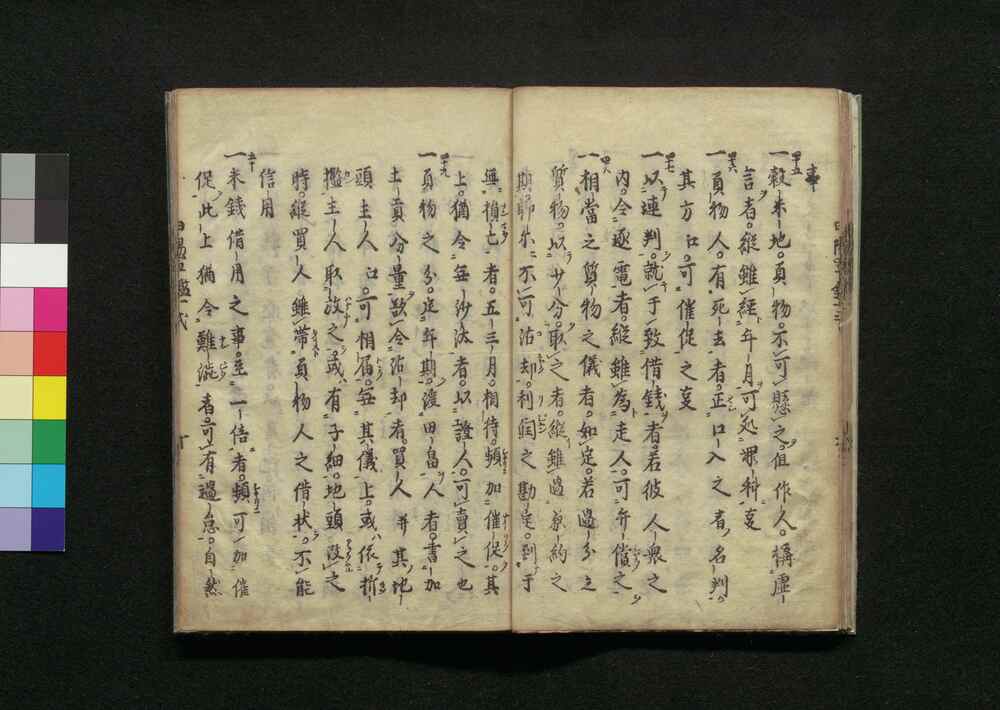 事
四十五
一穀米地。負物。不可懸之。但作人。構虚
言者。縦雖経年月。可処罪科支
四十六
一負物人。有死去者。正口入之者。名判。
其方江。可催促之支
四十七
一以連判。就于致借銭者。若彼人衆之
内。令逐電者。縦雖為走人。可弁償之
四十八
一相当之質物之儀者。如定。若過分之
質物。以少分。取之者。縦雖過兼約之
期歸尓。不可沽却。利潤之勘定。到于
無損亡者。五三月。相待。頻加催促。其
上。猶令毎沙汰者。以證人。可売之也
四十九
一負物之分。定年期。渡田畠人者。書加
土貢分量歟。令沽却者。買人并其地
頭主人江。可相届。毎其儀上。或依折
檻主人取放之。或有子細。地頭改之
時。縦買人雖帯負物人之借状。不能
信用
五十
一米銭借用之事。至一倍者。頻可加催
促。此上猶令難渋者。可有過怠。自然